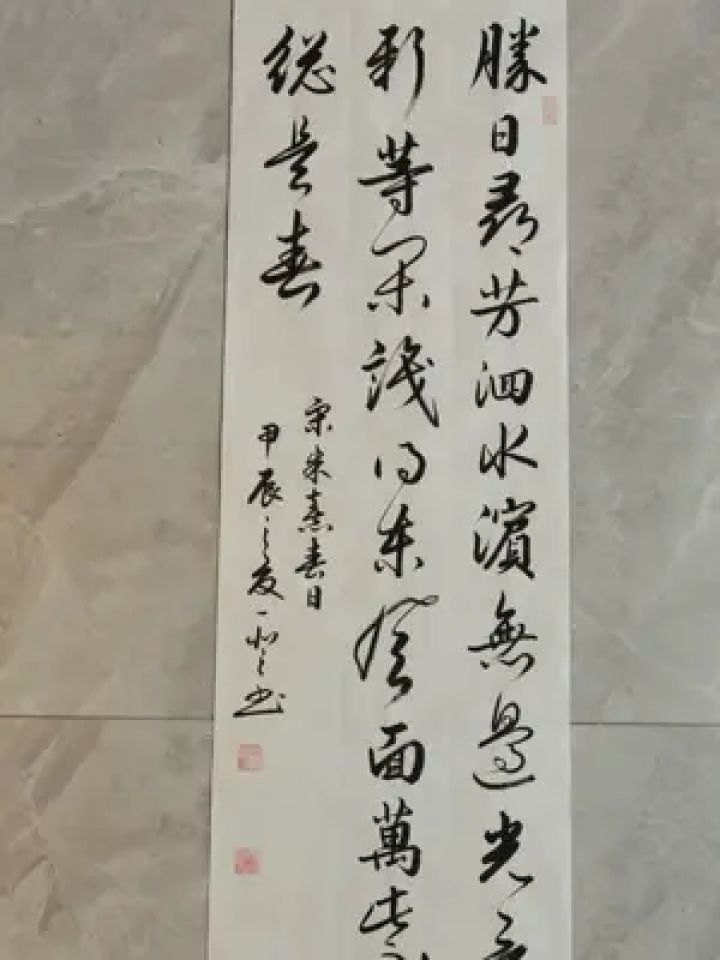 勝日尋芳泗水濱無邊光
新等閒識得東風面萬紫
總是春
宋朱熹春日
甲辰之夏 書